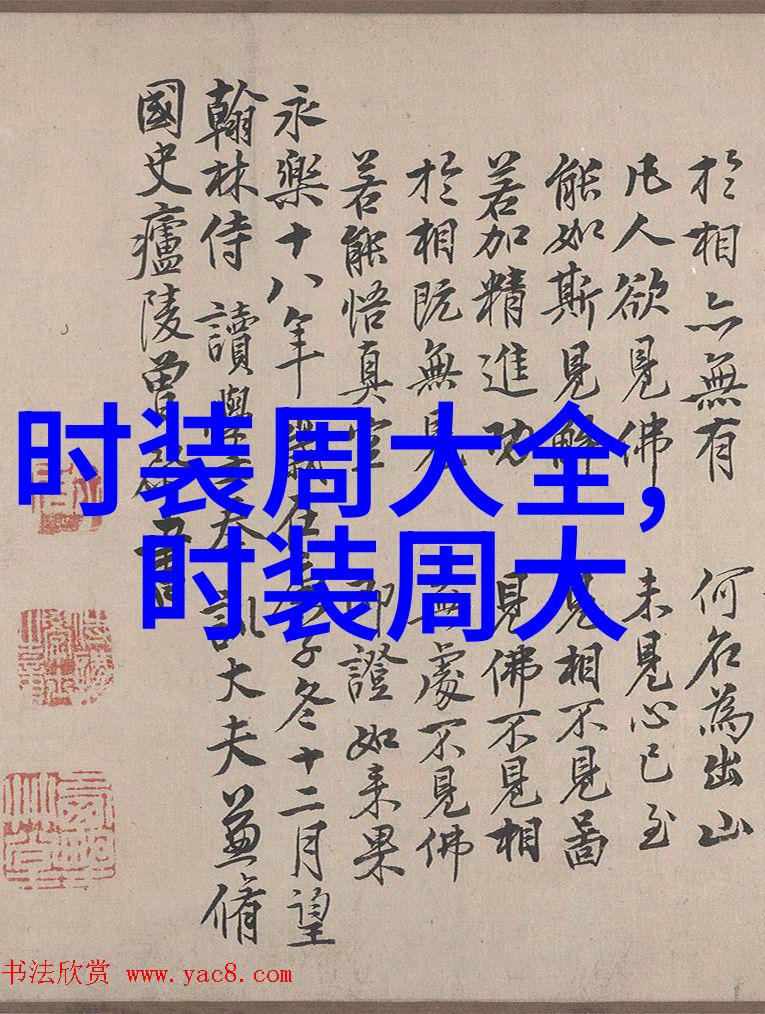 於相亦無有 何名為出山
凡人欲見佛 未見心已至
能如斯見解 見相不見啚
若加精進功 見佛不見相
於相既無見 無處不見佛
若能悟真空 即證如来果
永樂十八年歲在庚子冬十二月望
翰林侍讀學士奉訓大夫兼脩
國史廬陵曾棨書
时装周大全,
时装周大
书法欣赏 www.yac8.com